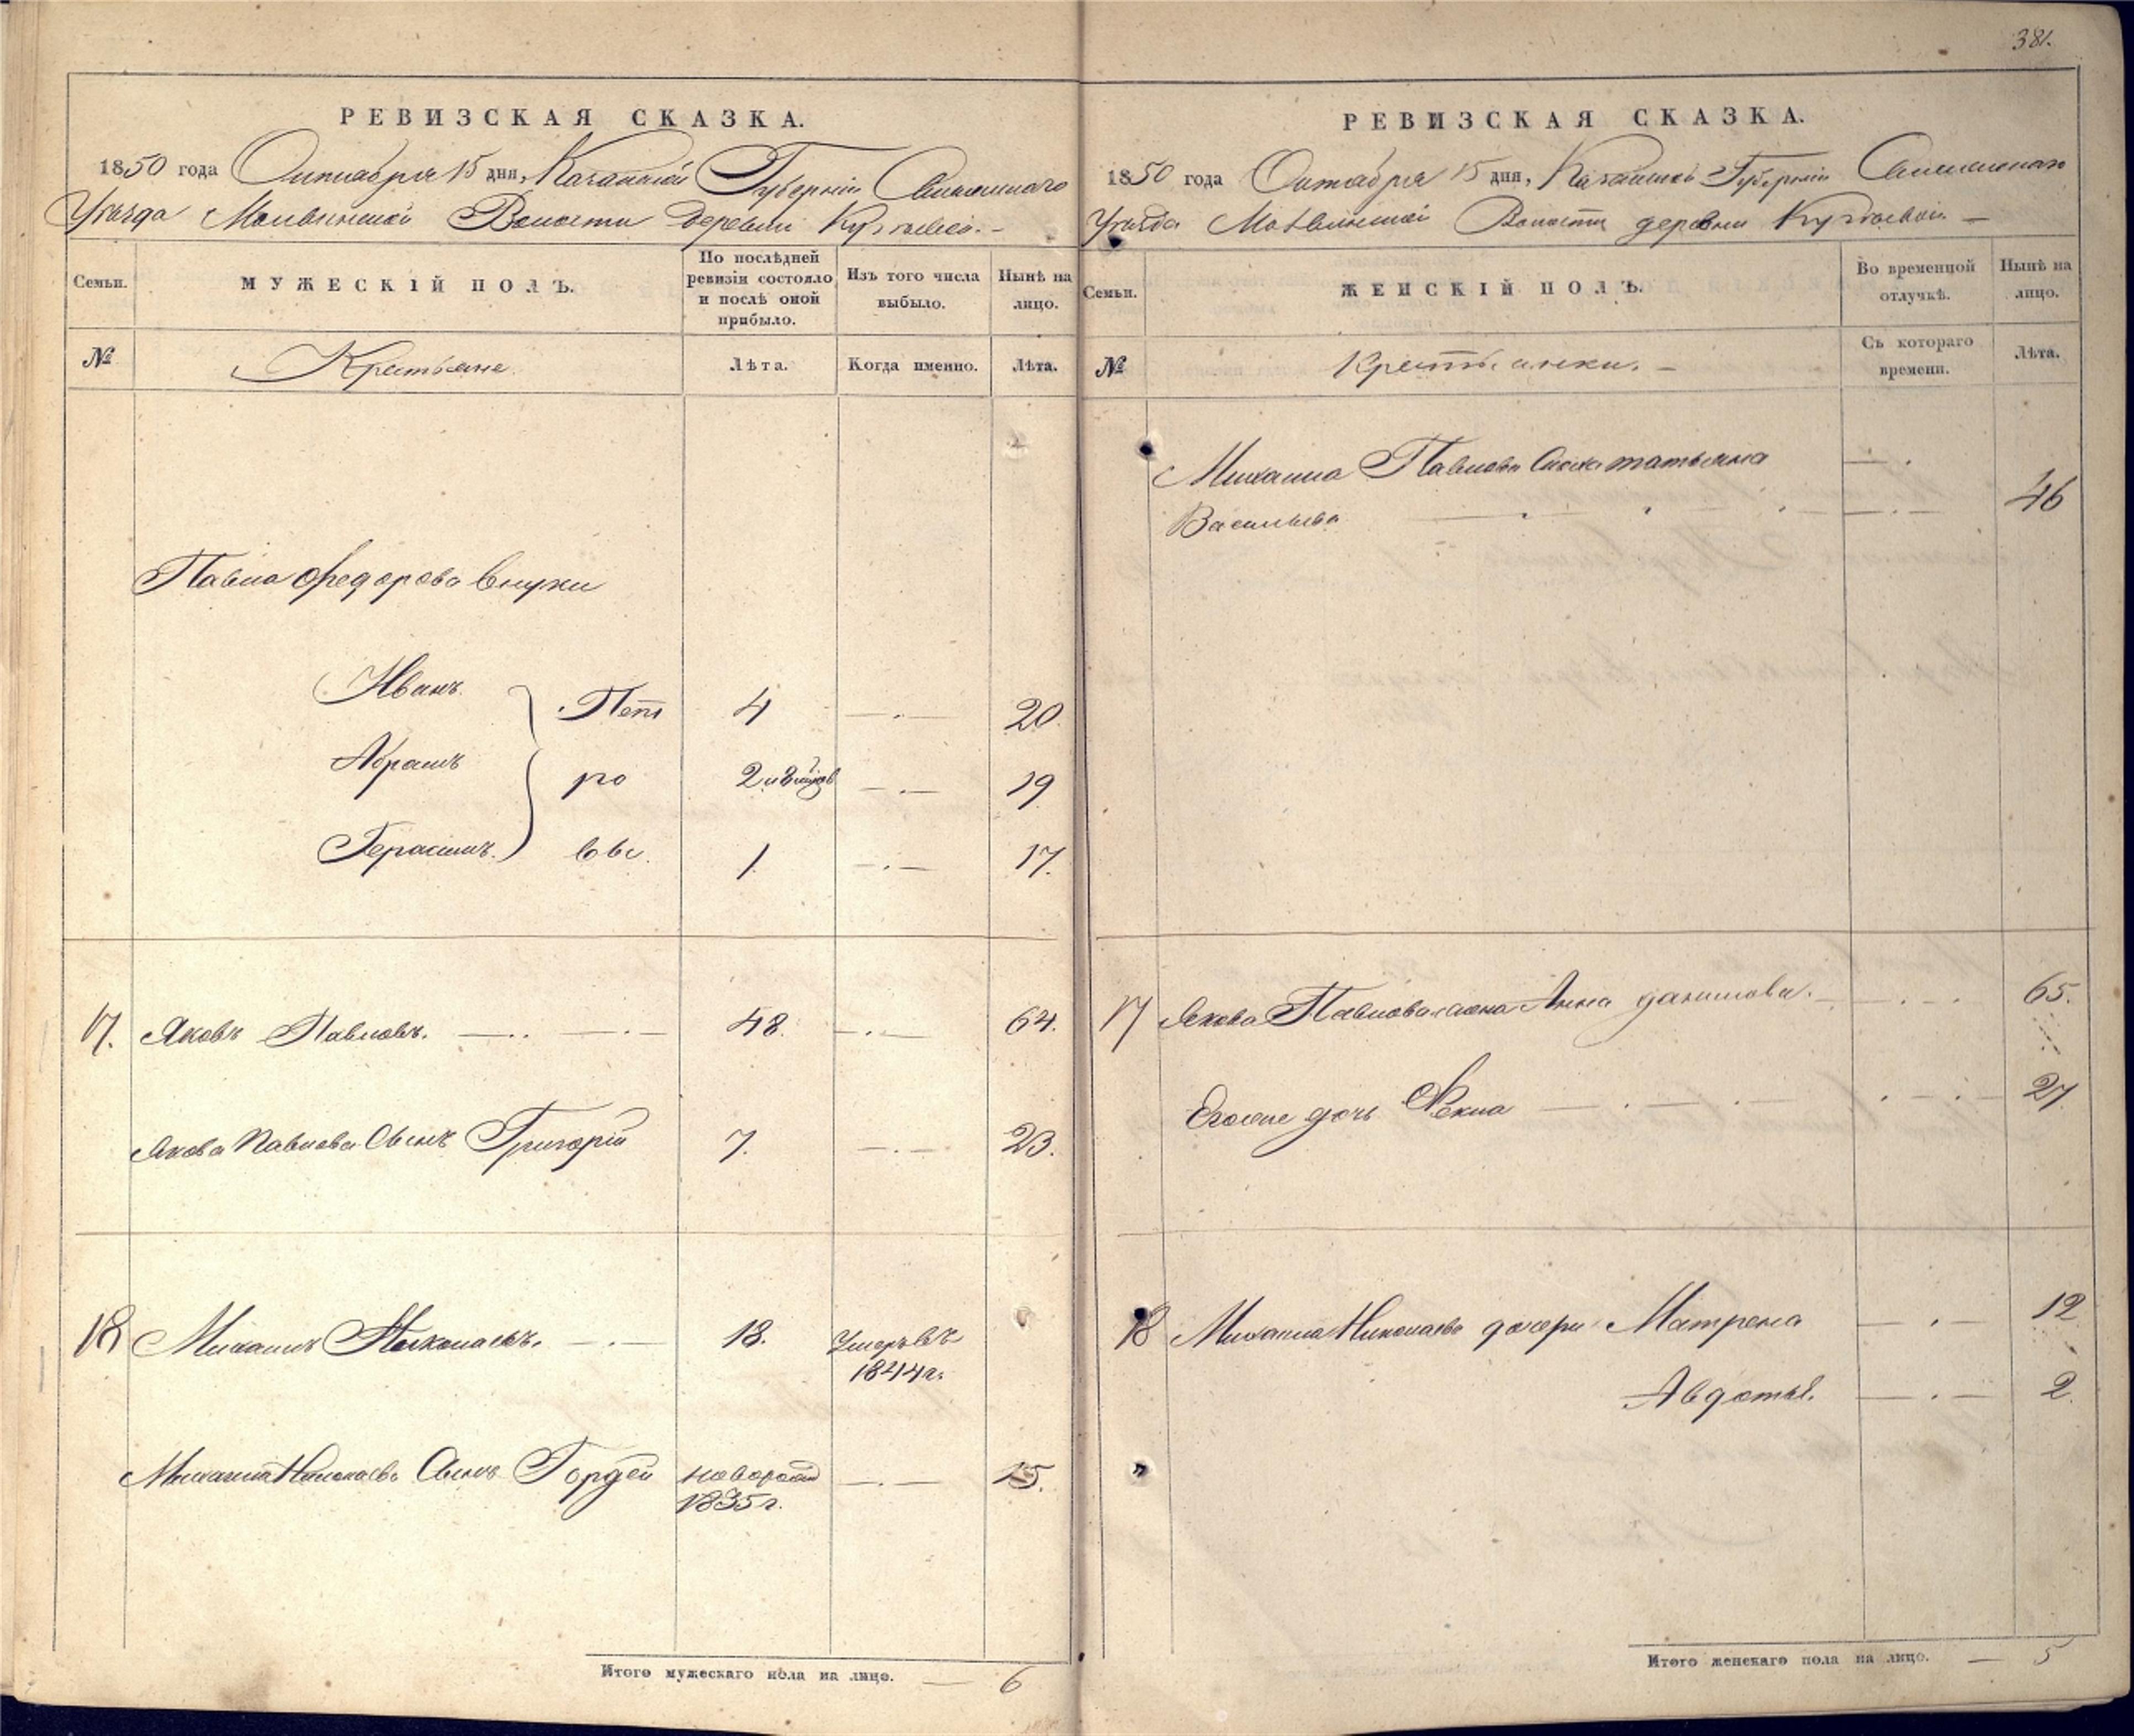 381.
РЕВИЗСКАЯ СКАЗКА.
1850 года Октября 15 дня, Казанской Губернiи
Уезда Волости деревни
Семьи.
МУЖЕСКIЙ ПОЛЪ.
По послѣдней ревизiи состояло и послѣ оной прибыло.
Изъ того числа выбыло.
Нынѣ на лицо.
№
Крестьяне
Лѣта.
Когда именно.
Лѣта.
Павла Федорова внуки
Иванъ Пет 4 20
Абрамъ ро 2 19
Герасимъ. вы. 1 17.
17. Яковъ Павловъ. 48. 64.
Якова Павлова сынъ Григорiй 7. 23.
18 Михаилъ Николаевъ. 18. Умеръ въ
1844 г.
Михаила Николаева сынъ Гордей новорож 15.
1835 г.
Итого мужескаго пола на лицо. — 6
РЕВИЗСКАЯ СКАЗКА.
1850 года Октября 15 дня, Казанской Губернiи
Уезда Волости деревни
Семьи.
ЖЕНСКIЙ ПОЛЪ.
Во временной отлучкѣ.
Нынѣ на лицо.
№
Крестьянки.
Съ котораго времени.
Лѣта.
Михаила Павлова Татьяна
Васильева 46
17 Якова Павлова жена Анна Данилова. 65.
Егоже дочь Фекла 27
18 Михаила Николаева дочери Матрена 12
Авдотья. 2
Итого женскаго пола на лицо. — 5